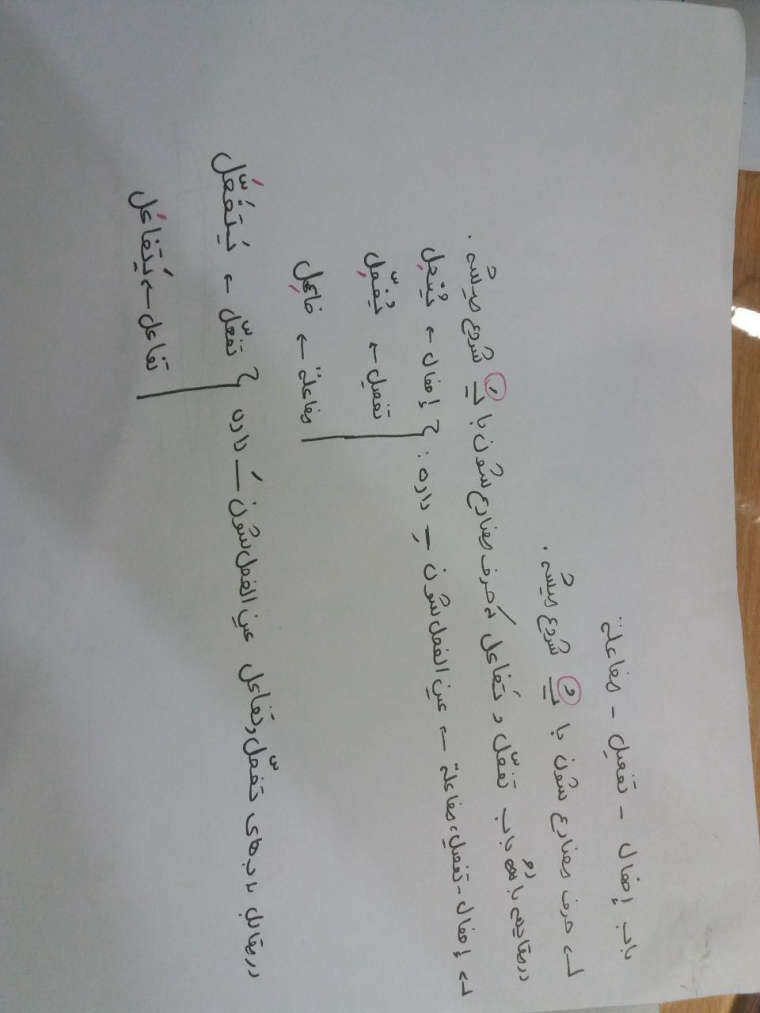 باب إفعال - تفعیل - مفاعلة
حرف مضارع شون با ـُ شروع میشه.
در مقایسه با دو باب تفعّل و تَفاعل که حرف مضارع شون با ـَ شروع میشه.
إفعال - تفعیل، مفاعلة ← عین الفعل شون ـِ داره:
إفعال ← یُفْعِل
تفعیل ← یُفَعِّل
مفاعلة ← فاعِل
در مقابل باب های تفعّل و تفاعل عین الفعل شون ـَ داره
تفعّل ← یَتَفَعَّل
تفاعل ← یَتَفاعَل